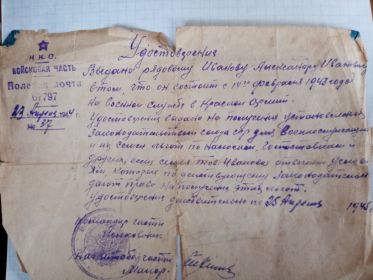 Н.К.О.
ВОЙСКОВАЯ ЧАСТЬ
Полевая почта
01797
23 Апреля
№ 37
Удостоверения
Выдано рядовому Иванову Александру Ивановичу
в том, что он состоит с 14го февраля 1943 года
на военной службе в Красной Армии.
Удостоверение выдано на получения установленных
Законодательством союза ССР для Военнослужащих
и их семей льгот по Налогам, Госпоставкам и
другия, если семья тов. Иванова отвечает условиям
Которые по действующему Законодательству
дают право на получения этих льгот.
Удостоверение действительно по 25 Апреля 194
Командир части
Полковник
Нач. штаба части
Майор